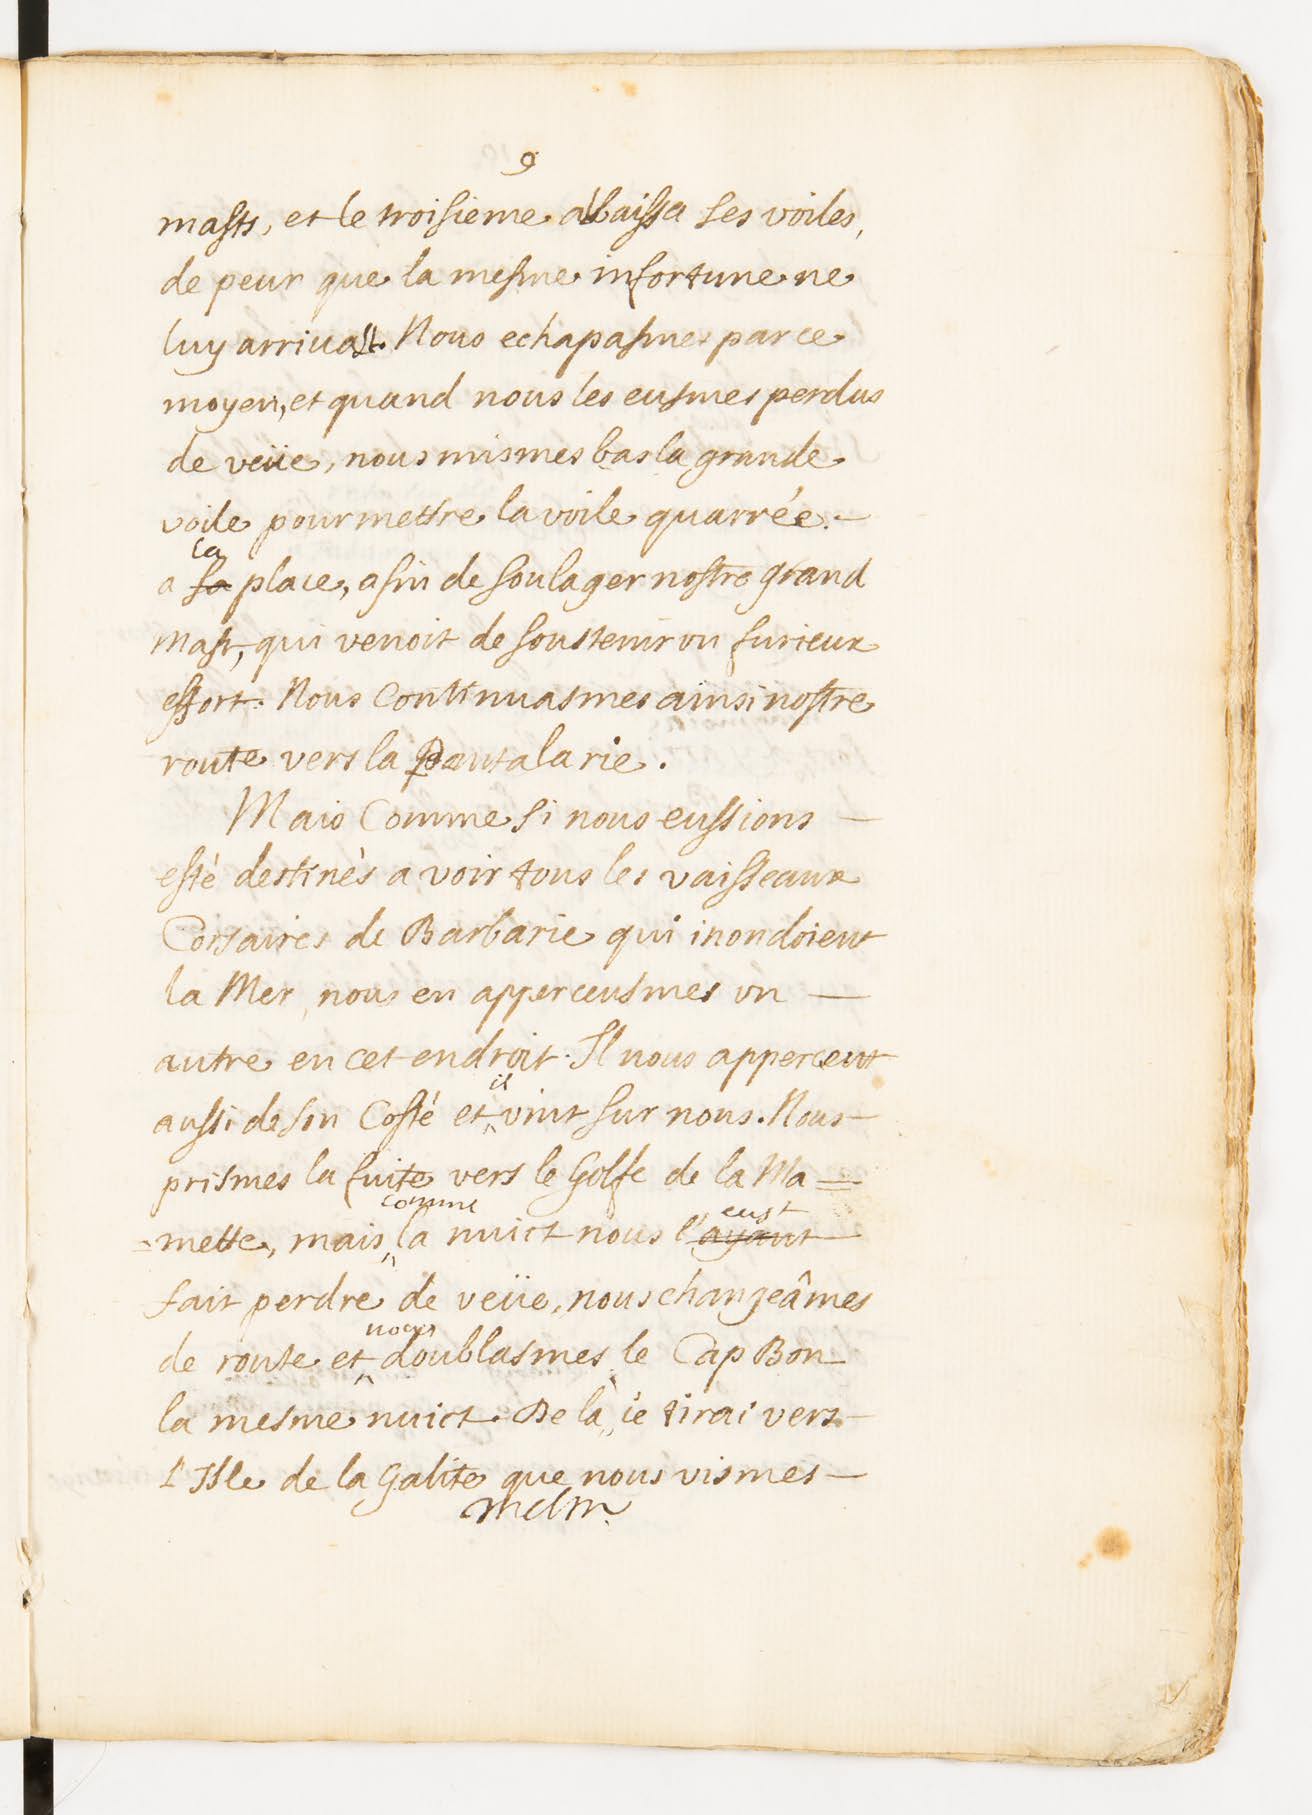 9
masts, et le troisieme abaissa ses voiles,
de peur que la mesme infortune ne
luy arrivast. Nous echapasmes par ce
moyen, et quand nous les eusmes perdus
de veüe, nous mismes bas la grande
voile pour mettre la voile quarrée. —
la
a sa place, afin de soulager nostre grand
Mast, qui venoit de soustenir un furieux
effort. Nous Continuasmes ainsi nostre
route vers la Pantalarie.
Mais Comme si nous eussions —
esté destinés a voir tous les vaisseaux
Corsaires de Barbarie qui inondoient
la Mer, nous en apperceusmes un —
autre en cet endroit. Il nous apperceut
il
aussi de son Costé et vint sur nous. Nous —
prismes la fuite vers le Golfe de la Ma =
comme eust
= mette, mais la nuict nous l'ayant
fait perdre de veüe, nous changeâmes
nous
de route et doublasmes le Cap Bon
la mesme nuict. De là, ie tirai vers —
l'Isle de la Galite que nous vismes —